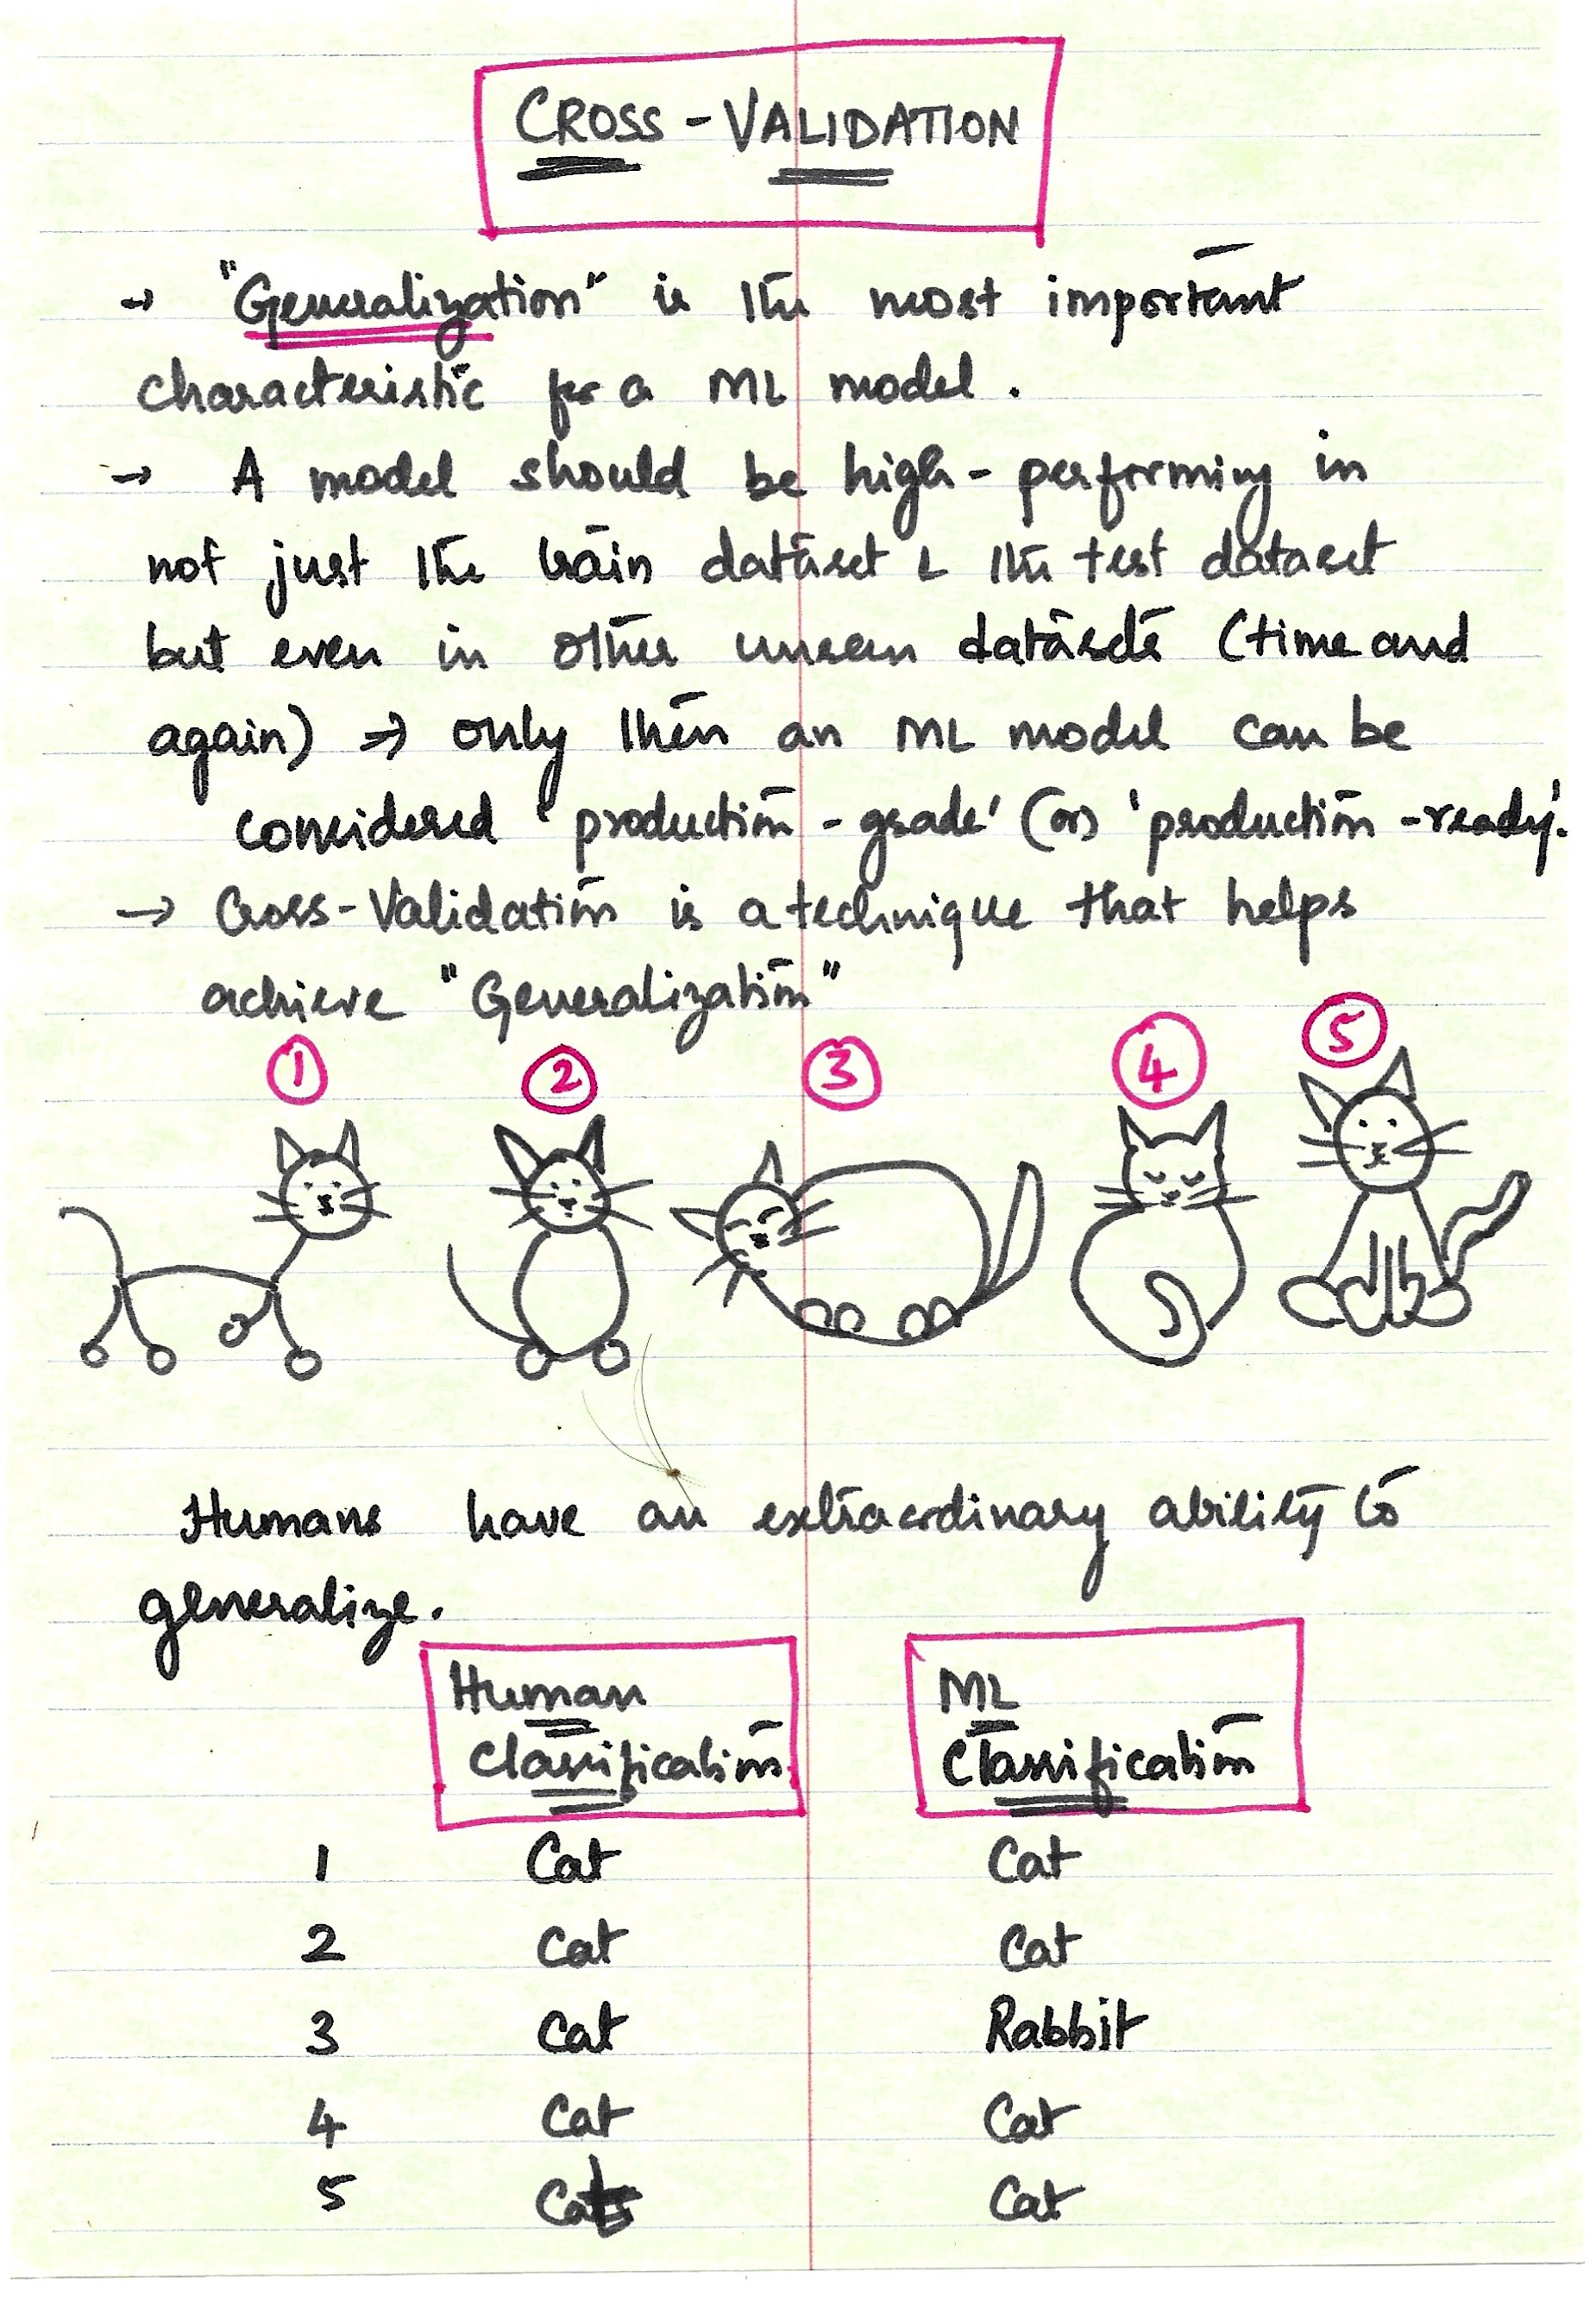 CROSS - VALIDATION
→ "Generalization" is the most important
characteristic for a ML model.
→ A model should be high-performing in
not just the train dataset & the test dataset
but even in other unseen datasets (time and
again) ⇒ only then an ML model can be
considered 'production-grade' (or) 'production-ready'.
→ Cross-Validation is a technique that helps
achieve "Generalization"
1 2 3 4 5
Humans have an extraordinary ability to
generalize.
Human ML
Classification Classification
1 Cat Cat
2 Cat Cat
3 Cat Rabbit
4 Cat Cat
5 Cat Cat